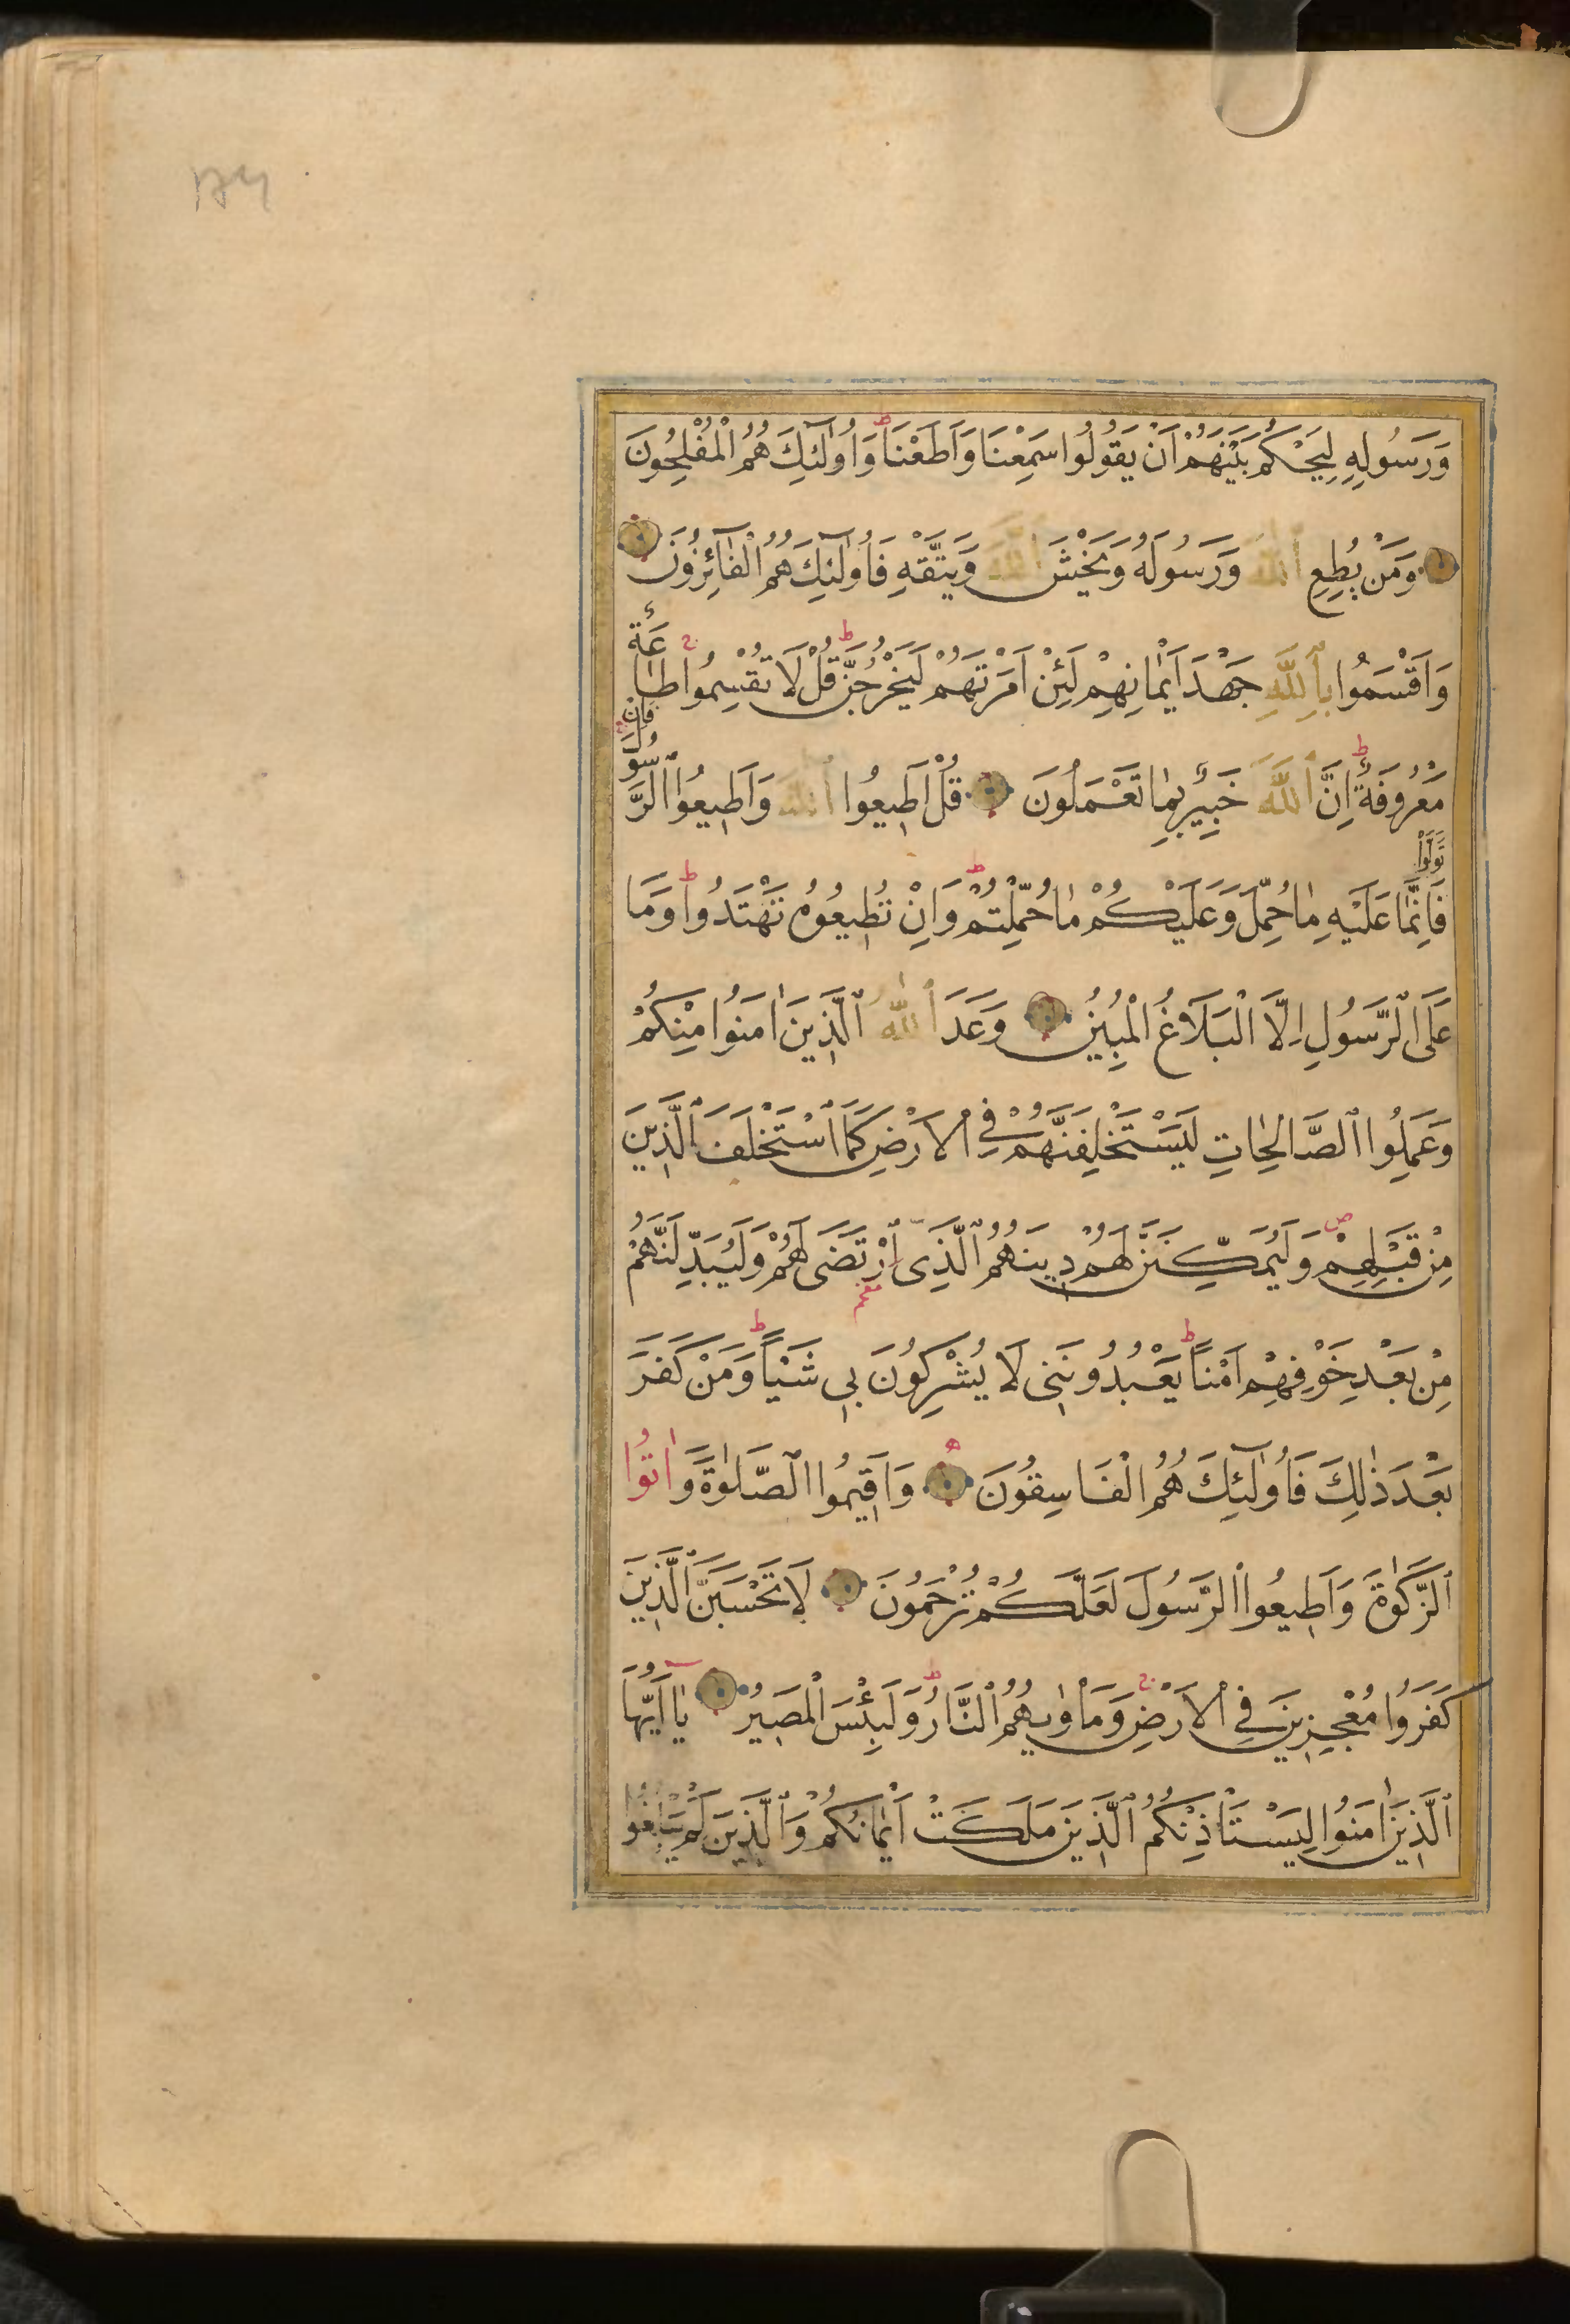 وَرَسُولِهِ لِيَحْكُمَ بَيْنَهُمْ اَنْ يَقُولُوا سَمِعْنَا وَاَطَعْنَا ط وَاُولٰٓئِكَ هُمُ الْمُفْلِحُونَ
وَمَنْ يُطِعِ اللّٰهَ وَرَسُولَهُ وَيَخْشَ اللّٰهَ وَيَتَّقْهِ فَاُولٰٓئِكَ هُمُ الْفَٓائِزُونَ
وَاَقْسَمُوا بِاللّٰهِ جَهْدَ اَيْمَانِهِمْ لَئِنْ اَمَرْتَهُمْ لَيَخْرُجُنَّ ط قُلْ لَا تُقْسِمُوا ج طَاعَةٌ
مَعْرُوفَةٌ ط اِنَّ اللّٰهَ خَبِيرٌ بِمَا تَعْمَلُونَ قُلْ اَطِيعُوا اللّٰهَ وَاَطِيعُوا الرَّسُولَ ج فَاِنْ
تَوَلَّوْا فَاِنَّمَا عَلَيْهِ مَا حُمِّلَ وَعَلَيْكُمْ مَا حُمِّلْتُمْ ط وَاِنْ تُطِيعُوهُ تَهْتَدُوا ط وَمَا
عَلَى الرَّسُولِ اِلَّا الْبَلَاغُ الْمُبِينُ وَعَدَ اللّٰهُ الَّذِينَ اٰمَنُوا مِنْكُمْ
وَعَمِلُوا الصَّالِحَاتِ لَيَسْتَخْلِفَنَّهُمْ فِي الْاَرْضِ كَمَا اسْتَخْلَفَ الَّذِينَ
مِنْ قَبْلِهِمْ ص وَلَيُمَكِّنَنَّ لَهُمْ دِينَهُمُ الَّذِى ارْتَضَى لَهُمْ وَلَيُبَدِّلَنَّهُمْ
مِنْ بَعْدِ خَوْفِهِمْ اَمْنًا ط يَعْبُدُونَنِى لَا يُشْرِكُونَ بِى شَيْـًٔا ط وَمَنْ كَفَرَ
بَعْدَ ذٰلِكَ فَاُولٰٓئِكَ هُمُ الْفَاسِقُونَ ه وَاَقِيمُوا الصَّلٰوةَ وَاٰتُوا
الزَّكٰوةَ وَاَطِيعُوا الرَّسُولَ لَعَلَّكُمْ تُرْحَمُونَ لَا تَحْسَبَنَّ الَّذِينَ
كَفَرُوا مُعْجِزِينَ فِي الْاَرْضِ ج وَمَاْوٰيهُمُ النَّارُ ط وَلَبِئْسَ الْمَصِيرُ يَٓا اَيُّهَا
الَّذِينَ اٰمَنُوا لِيَسْتَاْذِنْكُمُ الَّذِينَ مَلَكَتْ اَيْمَانُكُمْ وَالَّذِينَ لَمْ يَبْلُغُوا